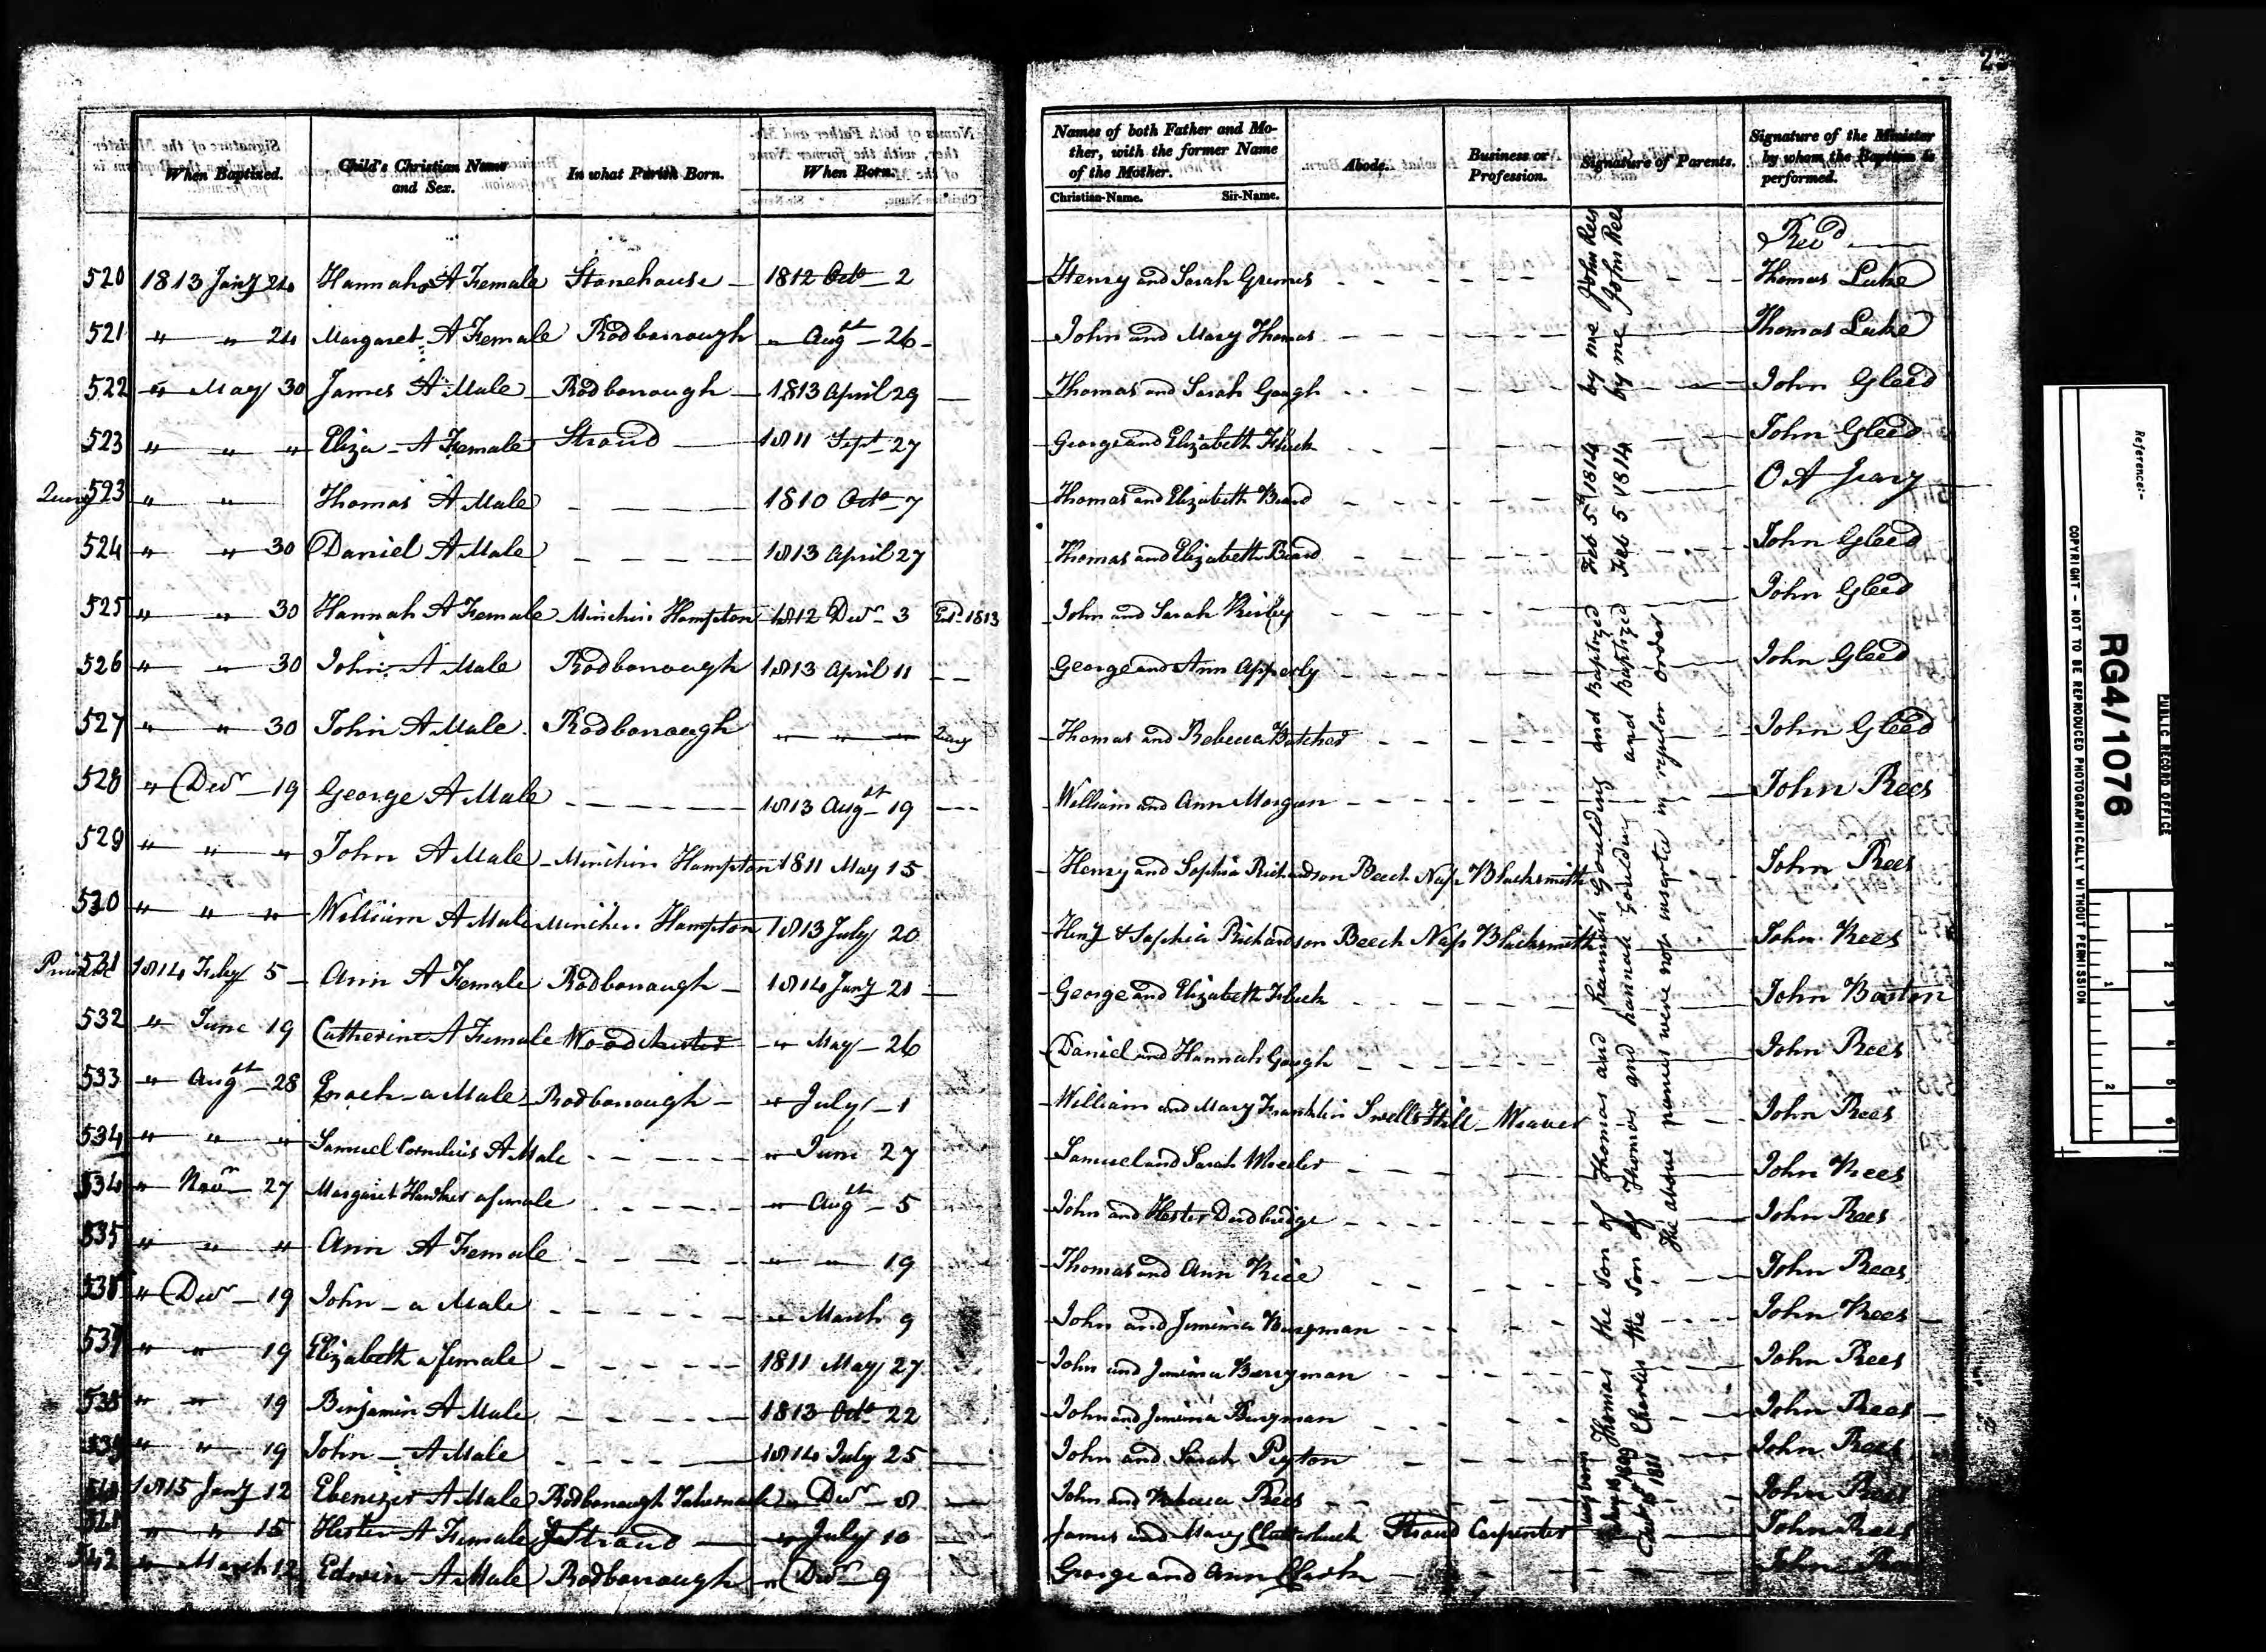 When Baptized. Child's Christian Name and Sex. In what Parish Born. When Born.
Names of both Father and Mother, with the former Name of the Mother. Christian-Name. Sir-Name. Abode. Business or Profession. Signature of Parents. Signature of the Minister by whom the Baptism is performed.
Revd
520 1813 Jany 24 Hannah A Female Stonehouse 1812 Octo 2 Henry and Sarah Grimes Thomas Luke
521 " " 24 Margaret A Female Rodborough " Augst 26 John and Mary Thomas Thomas Luke
522 " May 30 James A Male Rodborough 1813 April 29 Thomas and Sarah Gough John Gleed
523 " " " Eliza A Female Stroud 1811 Sept 27 George and Elizabeth Fluck John Gleed
523 " " Thomas A Male 1810 Octo 7 Thomas and Elizabeth Beard O A Jeary
524 " " 30 Daniel A Male 1813 April 27 Thomas and Elizabeth Beard John Gleed
525 " " 30 Hannah A Female Minchin Hampton 1812 Decr 3 1813 John and Sarah John Gleed
526 " " 30 John A Male Rodborough 1813 April 11 George and Ann Apperly John Gleed
527 " " 30 John A Male Rodborough " " " John Gleed Thomas and Rebecca Butcher
528 " Decr 19 George A Male 1813 Augst 19 William and Ann Morgan John Rees
529 " " " John A Male Minchin Hampton 1811 May 15 Henry and Sophia Richardson Beech Nap Blacksmith John Rees
530 " " " William A Male Minchin Hampton 1813 July 20 Heny & Sophia Richardson Beech Nap Blacksmith John Rees
531 1814 Feby 5 Ann A Female Rodborough 1814 Jany 21 George and Elizabeth Fluck John Boston
532 " June 19 Catherine A Female Woodchester " May 26 Daniel and Hannah Gough John Rees
533 " Augst 28 Enoch a Male Rodborough " July 1 William and Mary Franklin Swells Hill Weaver John Rees
534 " " " Samuel Cornelius A Male " June 27 Samuel and Sarah Wheeler John Rees
534 " Novr 27 Margaret Hawker a female " Augst 5 John and Hester Dudbridge John Rees
535 " " " Ann A Female " " 19 Thomas and Ann Rice John Rees
536 " Decr 19 John a Male " March 9 John and Jemima John Rees
537 " " 19 Elizabeth a female 1811 May 27 John and Jemima Berryman John Rees
538 " " 19 Benjamin A Male 1813 Octo 22 John and Jemima John Rees
539 " " 19 John A Male 1814 July 25 John and Sarah Peyton John Rees
1815 Jany 12 Ebenezer A Male Rodborough Tabernacle " Decr 8 John and Rebecca Rees John Rees
" " 15 Hester A Female Stroud " July 10 James and Mary Clutterbuck Stroud Carpenter John Rees
542 " March 12 Edwin A Male Rodborough " Decr 9 George and Ann Clark John Rees
Thomas the Son of Thomas and hannah Goulding and Baptized Feb 5th 1814 by me John Rees
Charles the Son of Thomas and hannah Goulding and baptized Feb 5 1814 by me John Rees
The above names were not inserted in regular order
Reference:-
RG4/1076
PUBLIC RECORD OFFICE
COPYRIGHT - NOT TO BE REPRODUCED PHOTOGRAPHICALLY WITHOUT PERMISSION